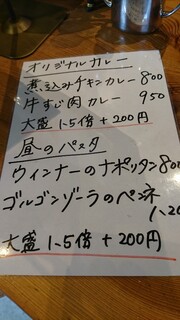 オリジナルカレー
煮込みチキンカレー 800
牛すじ肉カレー 950
大盛 1.5倍 + 200円
昼のパスタ
ウィンナーのナポリタン 800
ゴルゴンゾーラのペンネ
1,20
大盛 1.5倍 + 200円